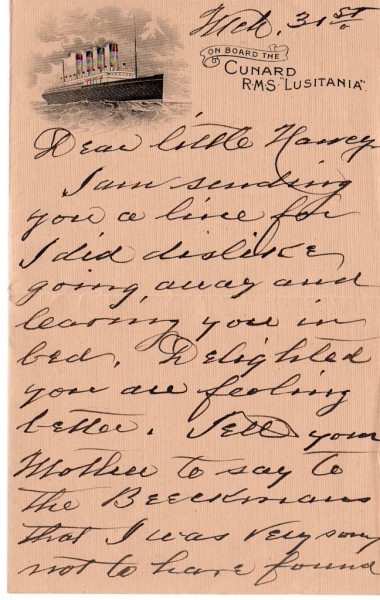 Mch. 31st
ON BOARD THE
CUNARD
RMS "LUSITANIA".
Dear little Harvey
I am sending
you a line for
I did dislike
going away and
leaving you in
bed. Delighted
you are feeling
better. Tell your
Mother to say to
the Beeckmans
that I was very sorry
not to have found